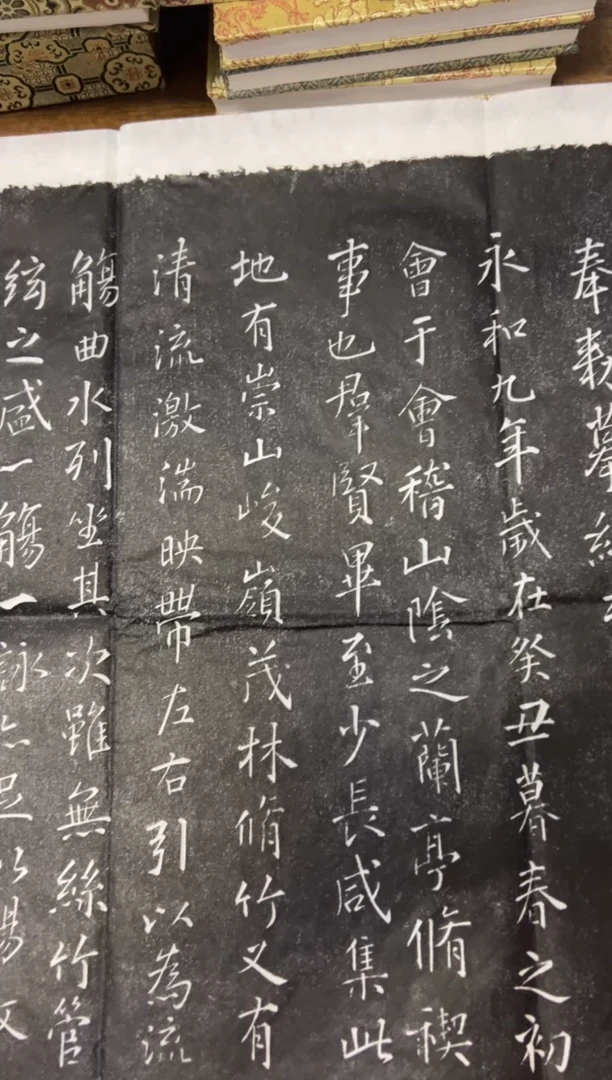 奉敕摹
永和九年歲在癸丑暮春之初
會于會稽山陰之蘭亭脩禊
事也羣賢畢至少長咸集此
地有崇山峻嶺茂林脩竹又有
清流激湍映帶左右引以為流
觴曲水列坐其次雖無絲竹管
絃之盛一觴一詠亦足以暢